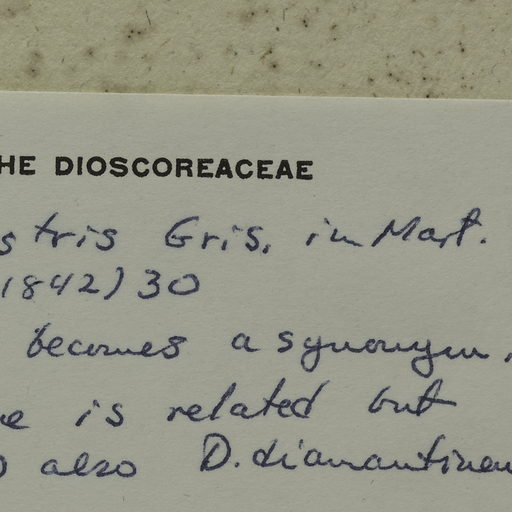 HE DIOSCOREACEAE
stris Gris. in Mart.
1842) 30
becomes a synonym.
e is related but
) also D. diamantinen